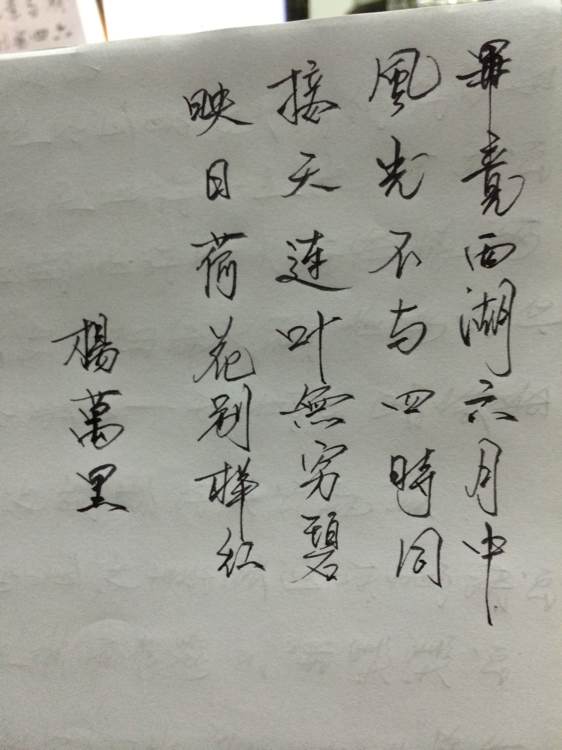 畢竟西湖六月中
風光不与四時同
接天連叶無穷碧
映日荷花别样红
楊萬里